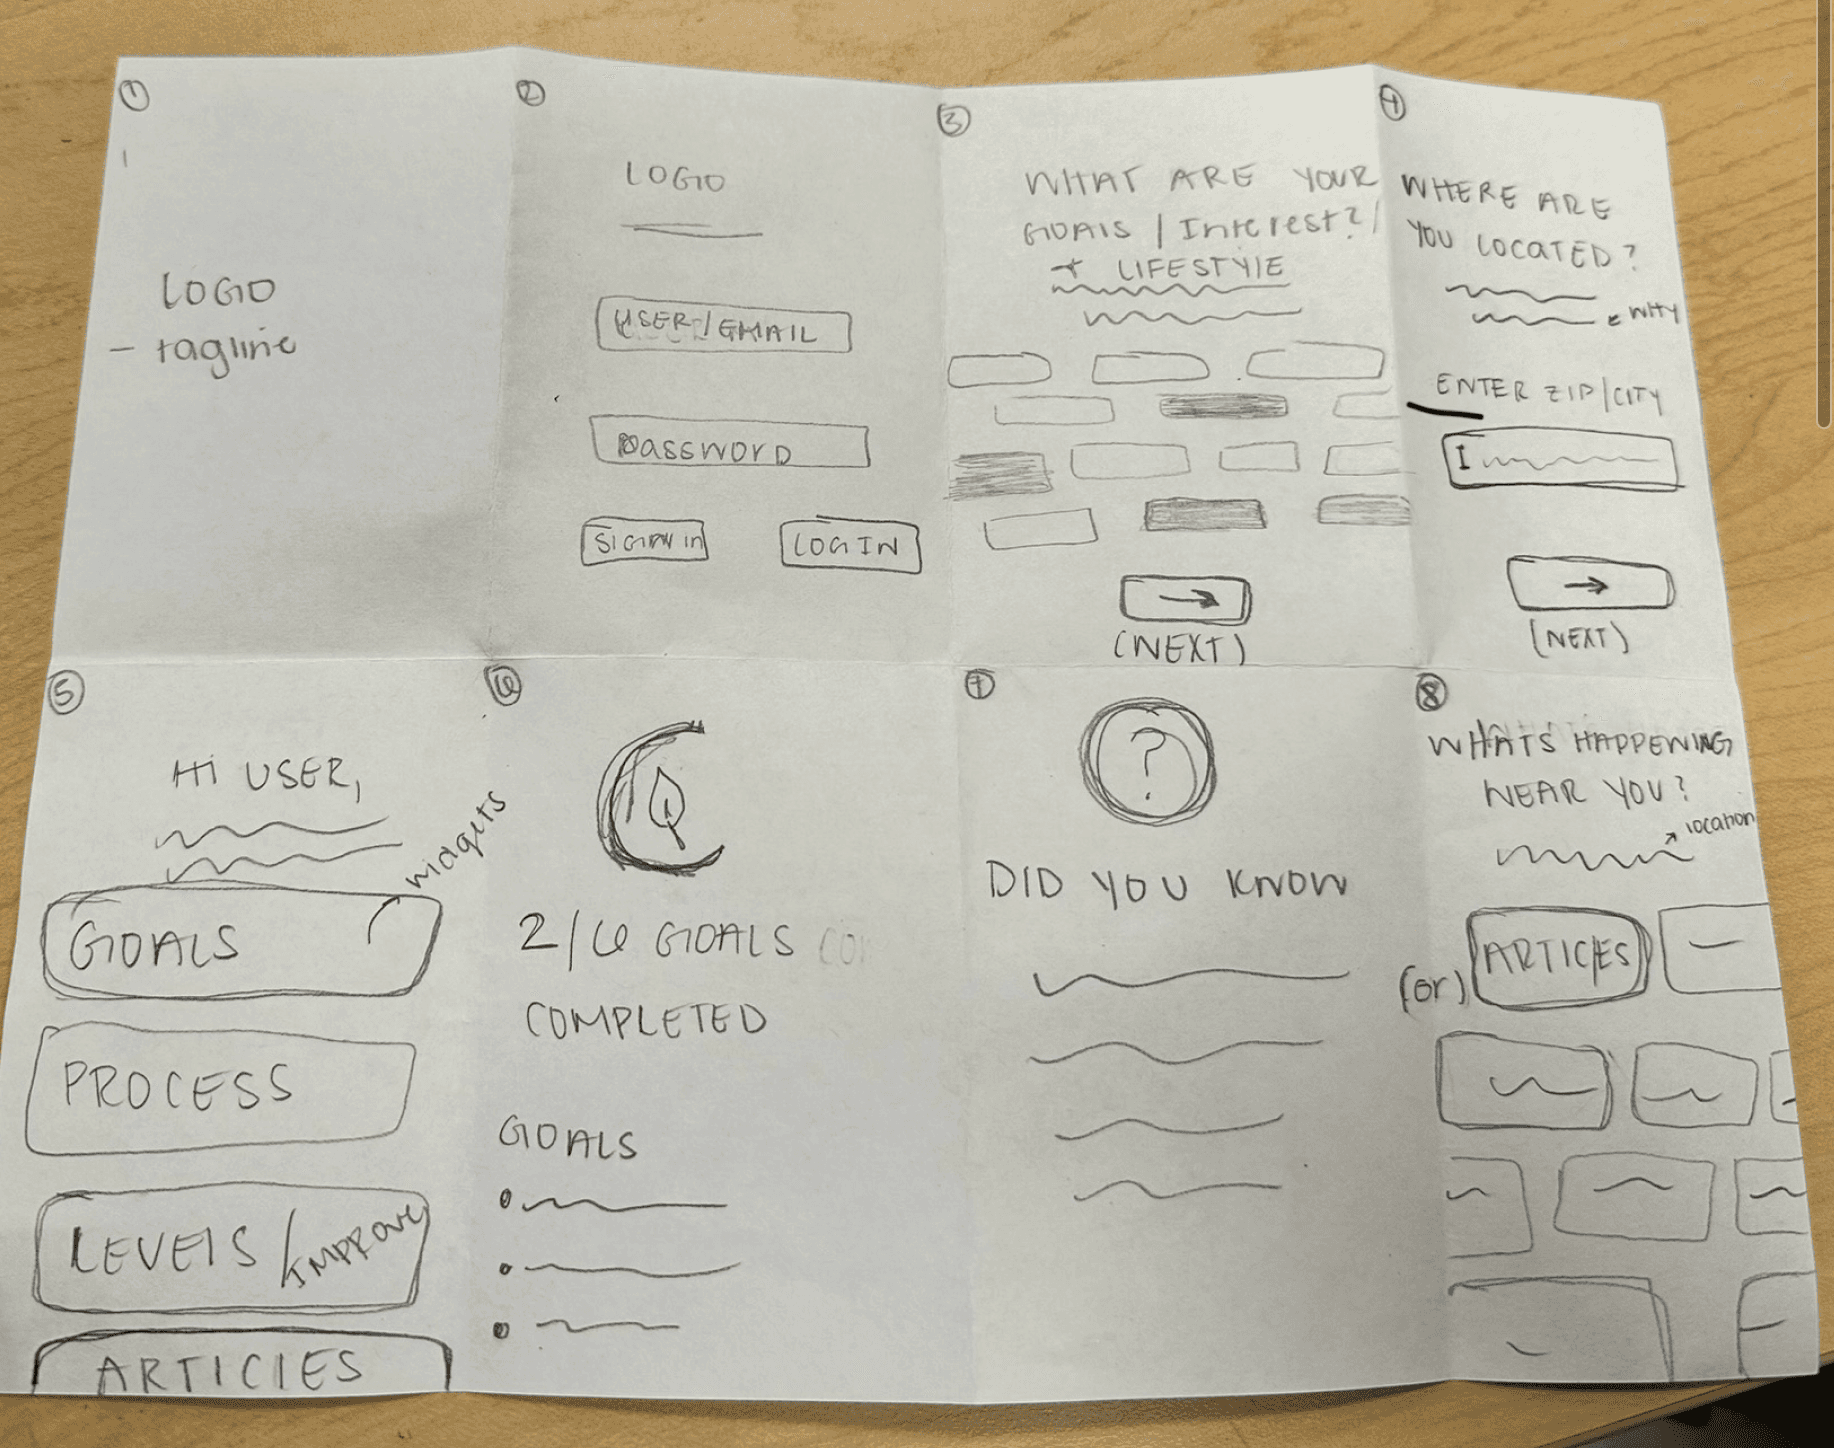 1
LOGO
- tagline
2
LOGO
USER/GMAIL
password
SIGN in
LOGIN
3
WHAT ARE YOUR
GOALS / Interest? /
+ LIFESTYLE
→
(NEXT)
4
WHERE ARE
YOU LOCATED?
WHY
ENTER ZIP/CITY
I
→
(NEXT)
5
Hi USER,
widgets
GOALS
PROCESS
LEVELS / IMPROVE
ARTICLES
6
2/6 GOALS
COMPLETED
GOALS
7
?
DID YOU KNOW
8
WHATS HAPPENING
NEAR YOU?
location
(or) ARTICLES